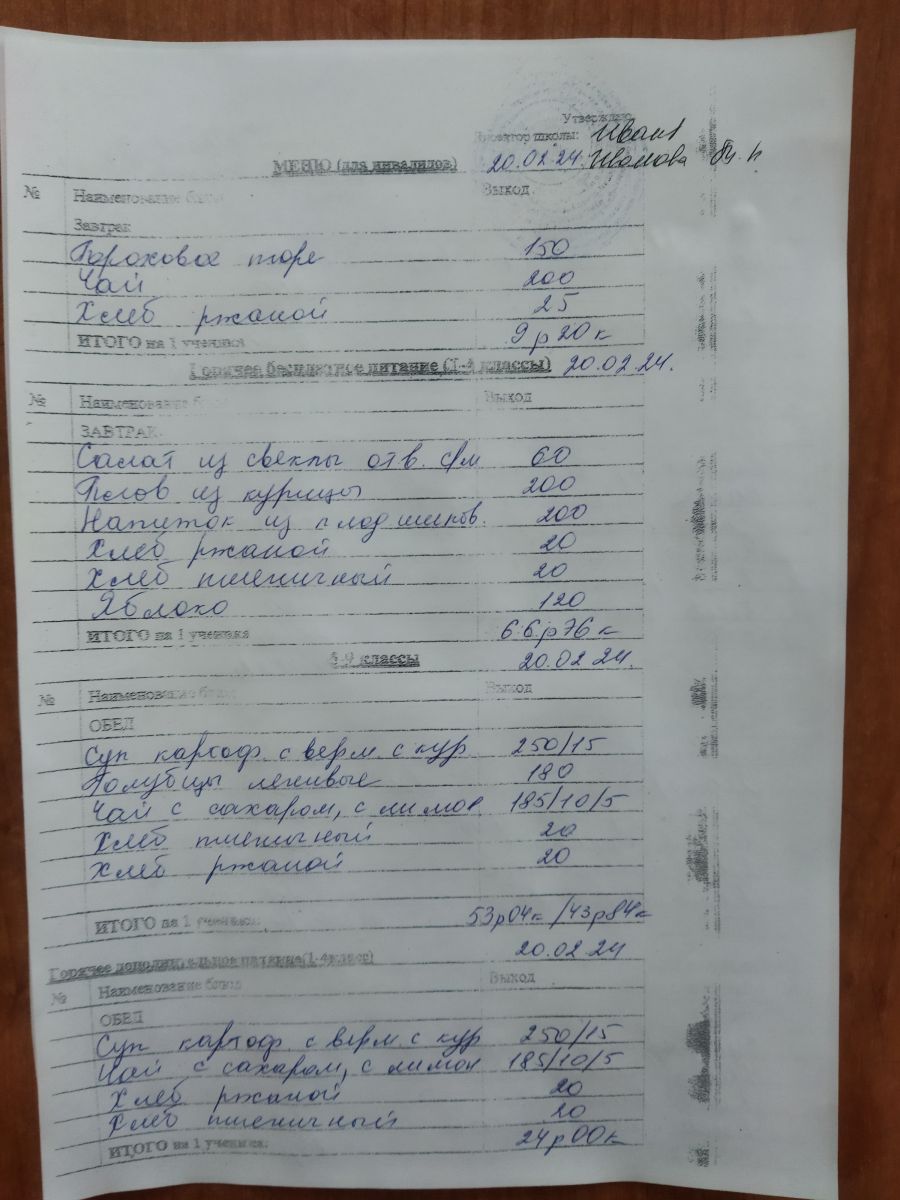 Утверждаю
Директор школы:
20.02.24. Иванова
МЕНЮ (для инвалидов)
№ Наименование блюд Выход
Завтрак
Гороховое пюре 150
Чай 200
Хлеб ржаной 25
ИТОГО на 1 ученика 9р20к
Горячее бесплатное питание (1-4 классы) 20.02.24.
№ Наименование блюд Выход
ЗАВТРАК
Салат из свеклы отв. с/м 60
Плов из курицы 200
Напиток из плод шипов. 200
Хлеб ржаной 20
Хлеб пшеничный 20
Яблоко 120
ИТОГО на 1 ученика 66р76к
5-9 классы 20.02.24.
№ Наименование блюд Выход
ОБЕД
Суп картоф. с верм. с кур 250/15
Голубцы ленивые 180
Чай с сахаром, с лимон 185/10/5
Хлеб пшеничный 20
Хлеб ржаной 20
ИТОГО на 1 ученика: 53р04к /43р84к
20.02.24
Горячее дополнительное питание(1-4 класс)
№ Наименование блюд Выход
ОБЕД
Суп картоф. с верм. с кур 250/15
Чай с сахаром, с лимон 185/10/5
Хлеб ржаной 20
Хлеб пшеничный 20
ИТОГО на 1 ученика: 24р00к